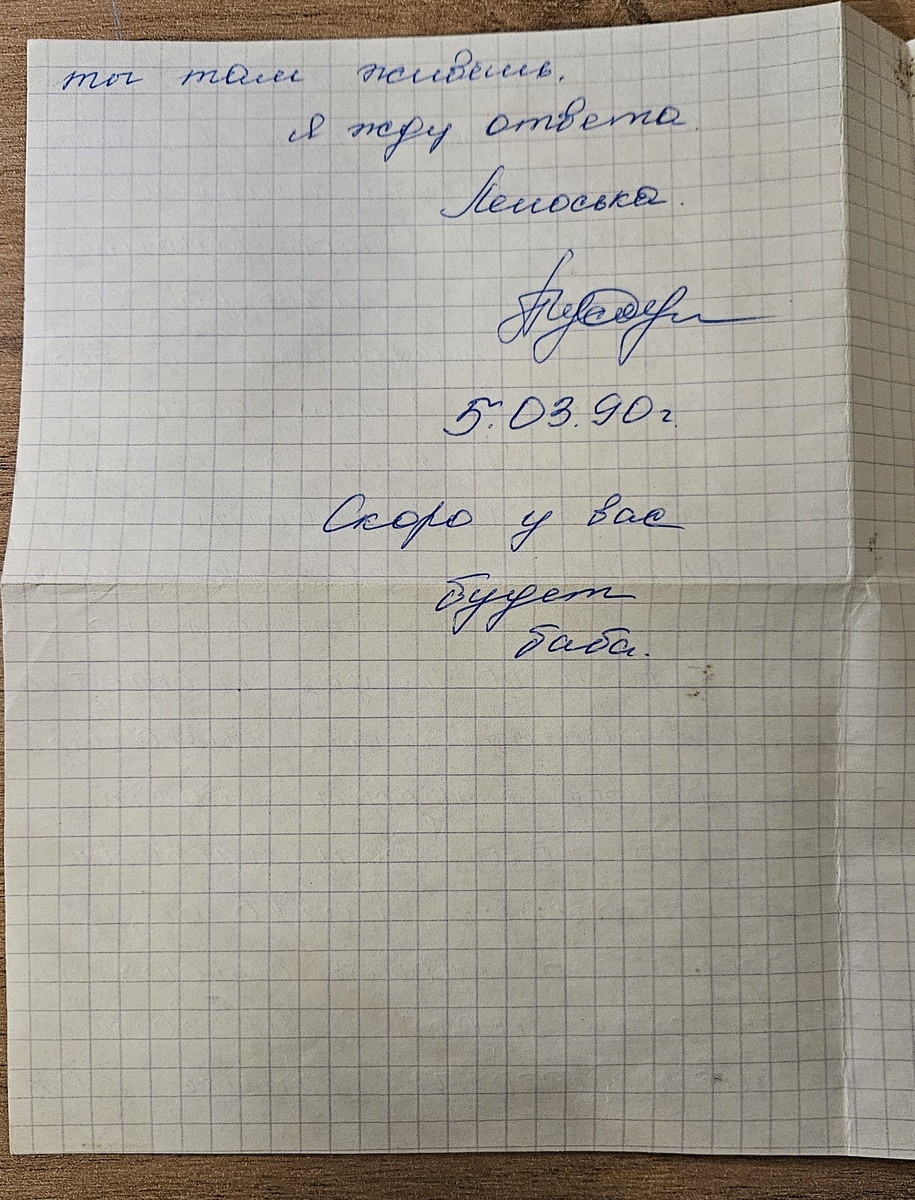 ты там живёшь.
я жду ответа
5.03.90г.
Скоро у вас
будет
баба.